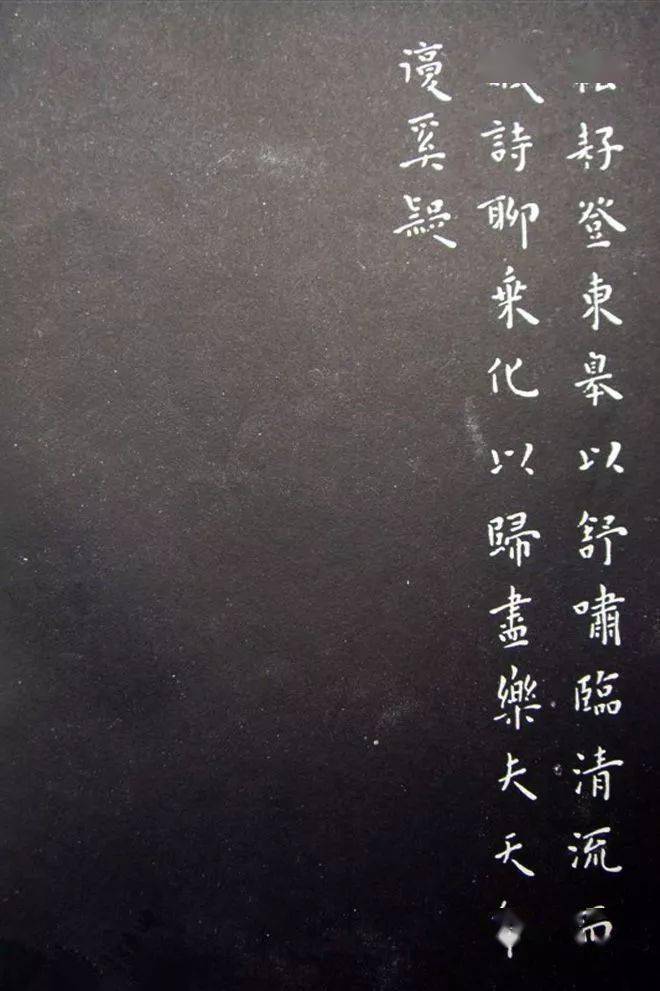 耔登東皋以舒嘯臨清流而
詩聊乘化以歸盡樂夫天
復奚疑